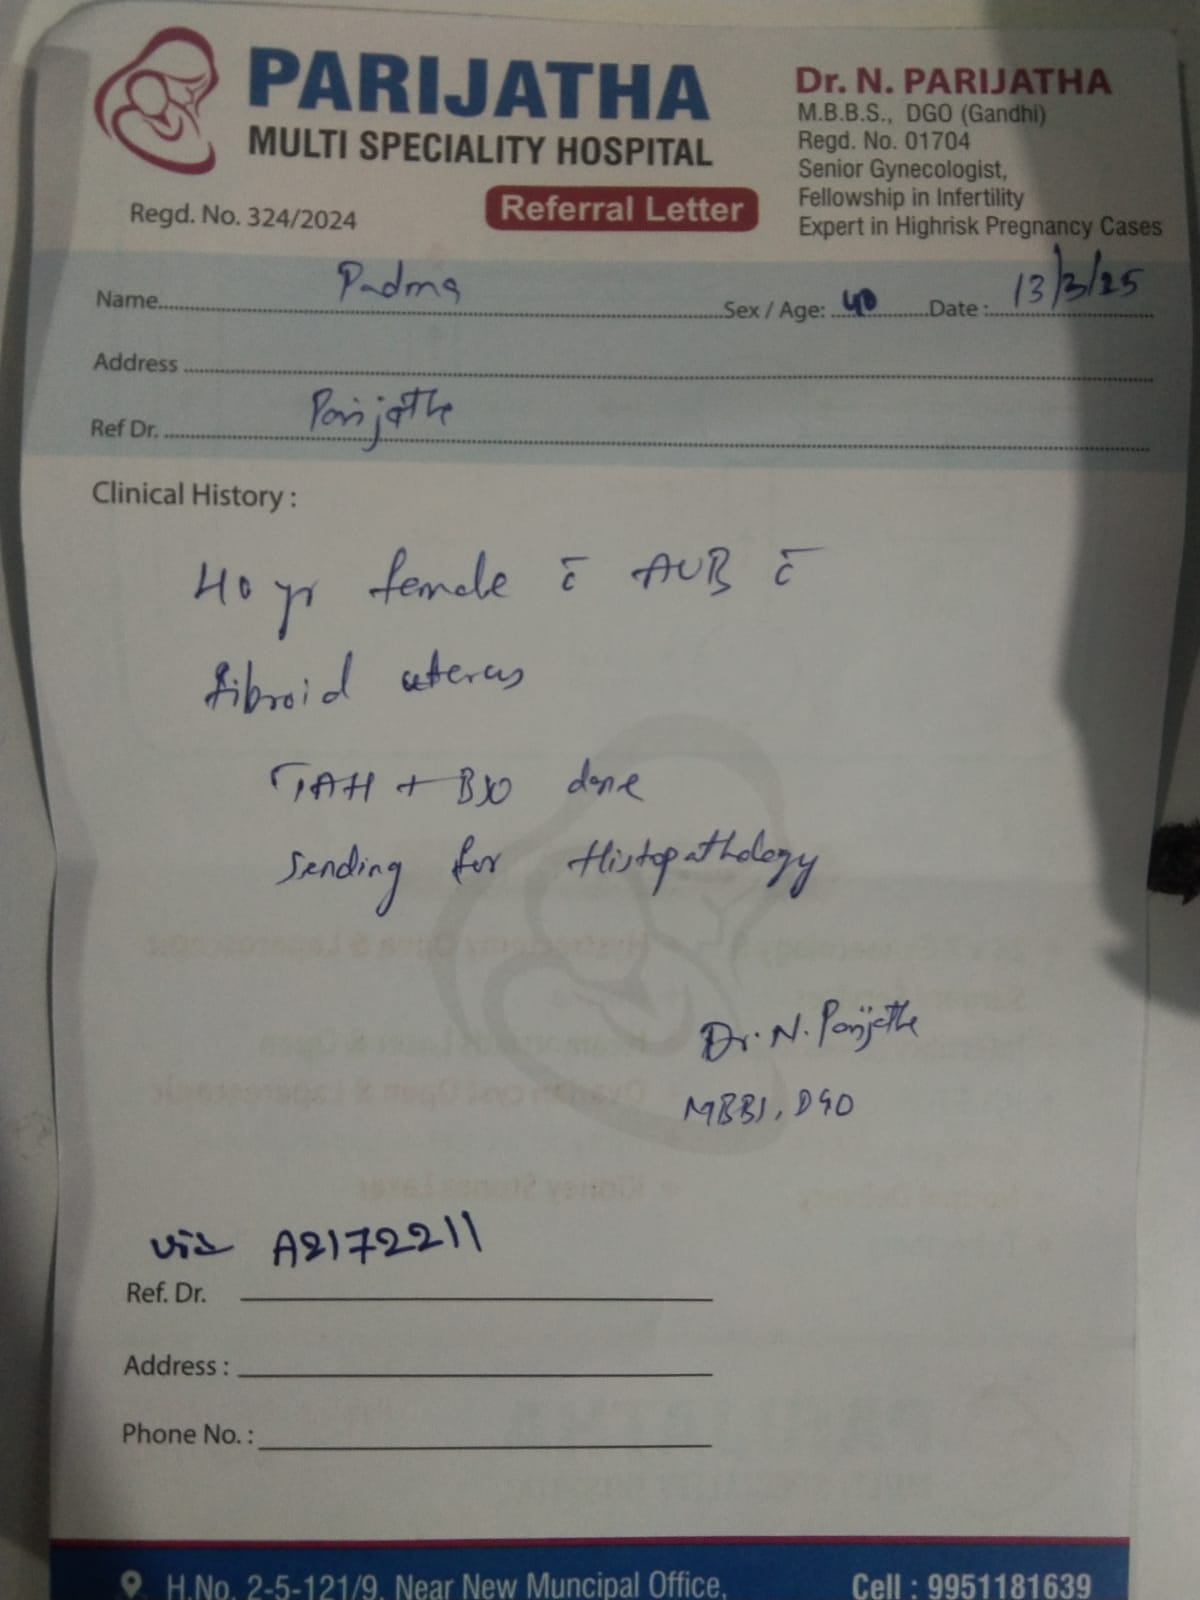 PARIJATHA
MULTI SPECIALITY HOSPITAL
Regd. No. 324/2024
Referral Letter
Dr. N. PARIJATHA
M.B.B.S., DGO (Gandhi)
Regd. No. 01704
Senior Gynecologist,
Fellowship in Infertility
Expert in Highrisk Pregnancy Cases
Name Padma Sex / Age: 40 Date : 13/3/25
Address
Ref Dr. Parijatha
Clinical History :
40 yr female c̄ AUB c̄
fibroid uterus
TAH + BSO done
Sending for Histopathology
Dr. N. Parijatha
MBBS, DGO
A2172211
Ref. Dr.
Address :
Phone No. :
H.No. 2-5-121/9, Near New Muncipal Office, Cell : 9951181639